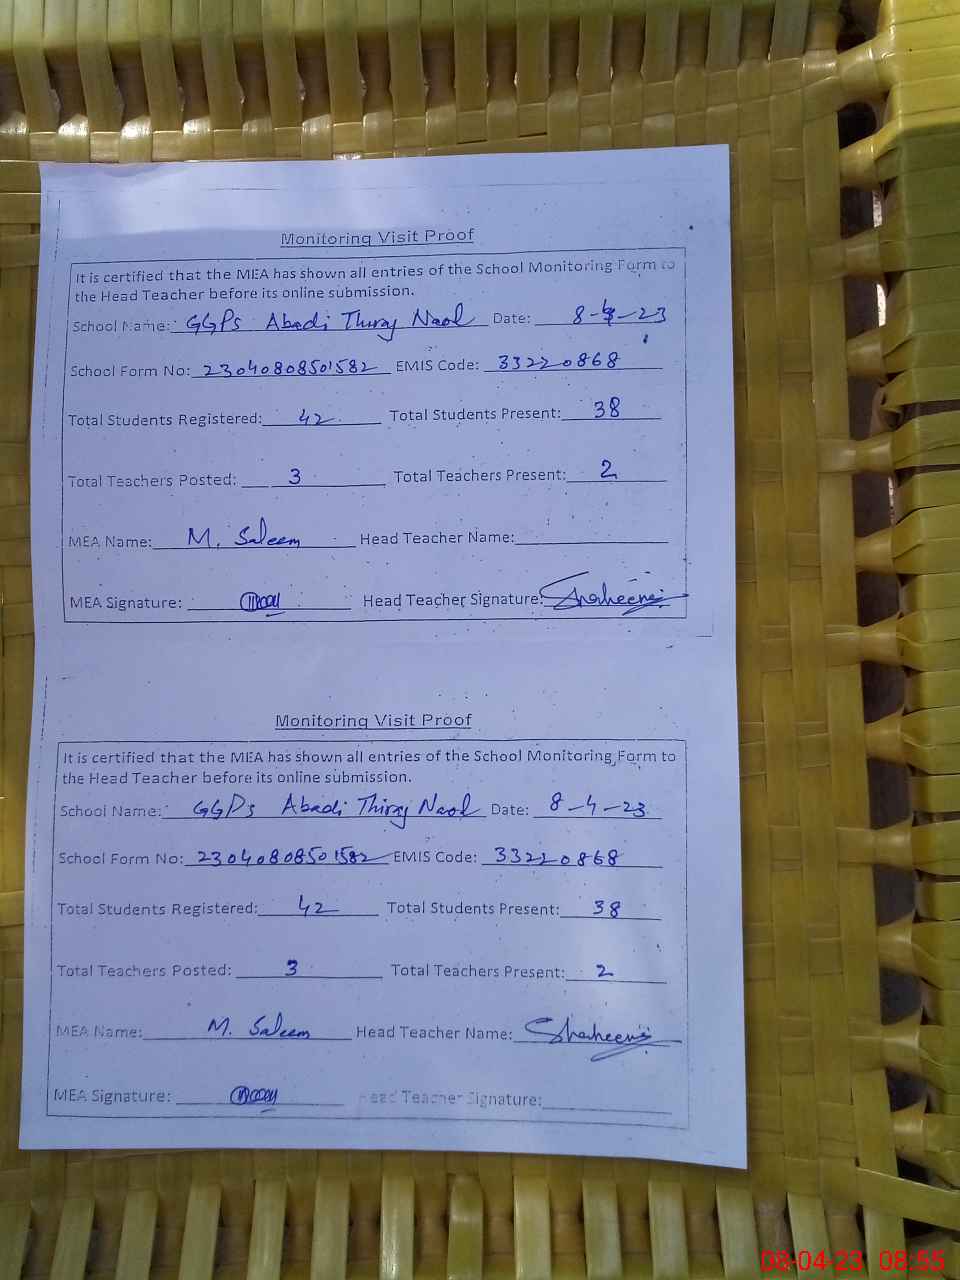 Monitoring Visit Proof
It is certified that the MEA has shown all entries of the School Monitoring Form to
the Head Teacher before its online submission.
School Name: GGPS Abadi Thiraj Naol Date: 8-4-23
School Form No: 23040808501582 EMIS Code: 33220868
Total Students Registered: 42 Total Students Present: 38
Total Teachers Posted: 3 Total Teachers Present: 2
MEA Name: M. Saleem Head Teacher Name:
MEA Signature: Head Teacher Signature: Shaheena
Monitoring Visit Proof
It is certified that the MEA has shown all entries of the School Monitoring Form to
the Head Teacher before its online submission.
School Name: GGPS Abadi Thiraj Naol Date: 8-4-23
School Form No: 23040808501582 EMIS Code: 33220868
Total Students Registered: 42 Total Students Present: 38
Total Teachers Posted: 3 Total Teachers Present: 2
MEA Name: M. Saleem Head Teacher Name: Shaheena
MEA Signature: Head Teacher Signature:
08-04-23 08:55